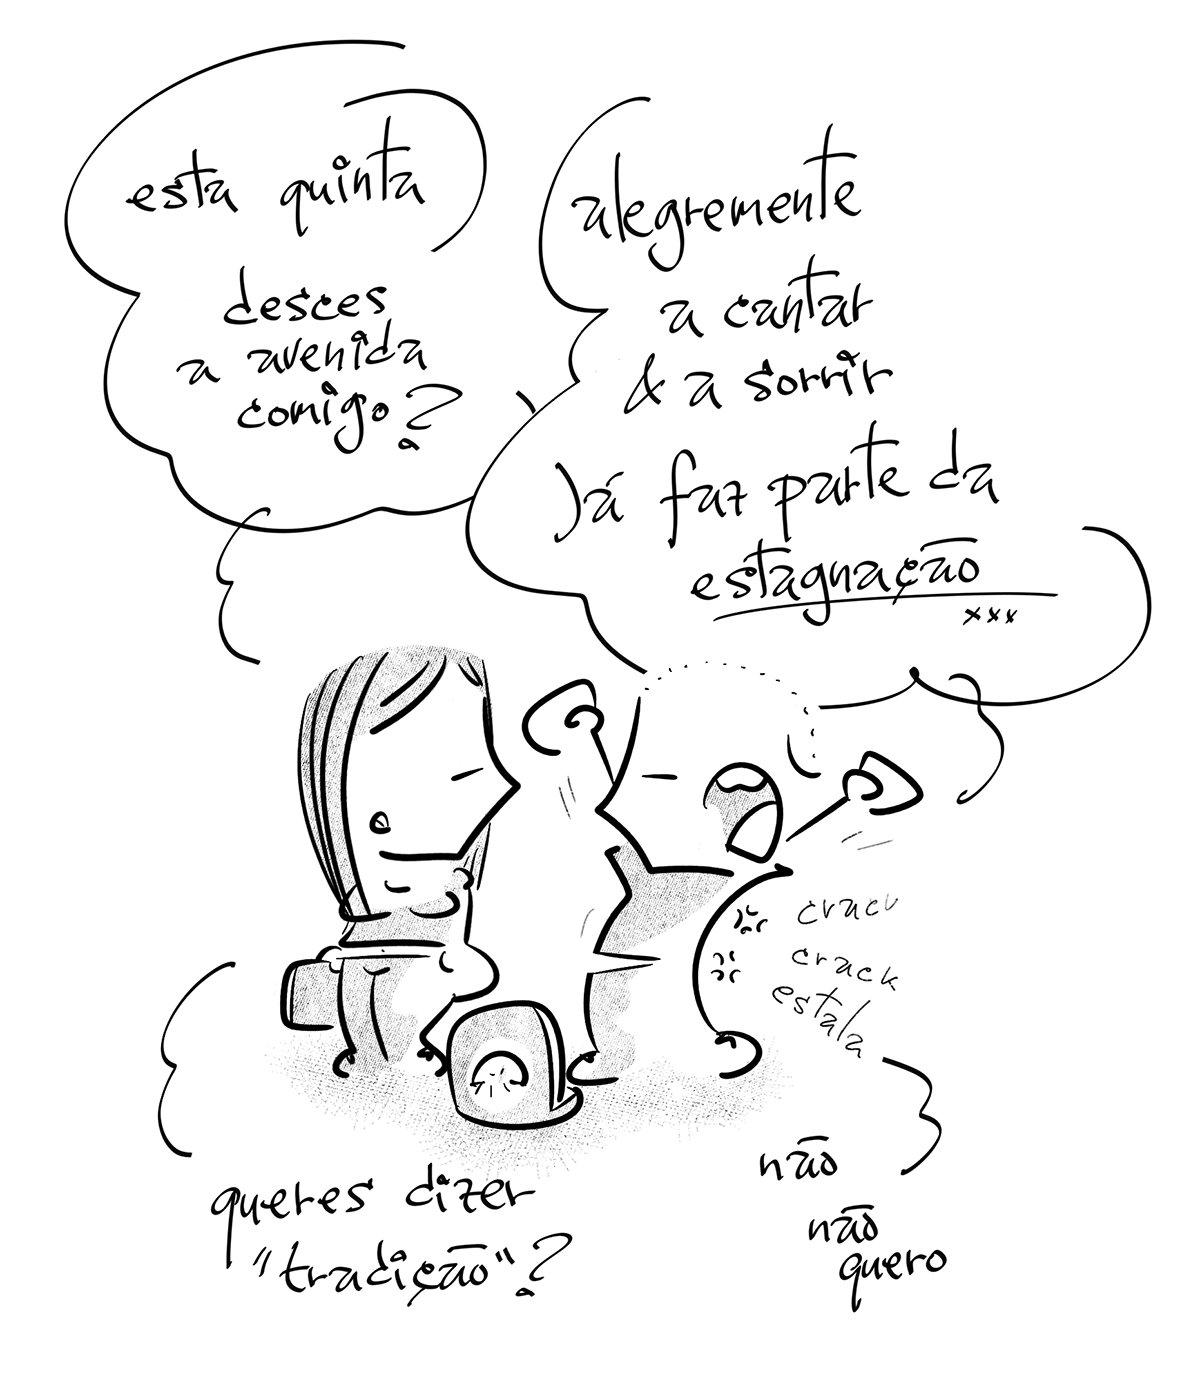 esta quinta
desces
a avenida
comigo?
alegremente
a cantar
& a sorrir
Já faz parte da
estagnação
xxx
crack
crack
estala
queres dizer
"tradição"?
não
não
quero